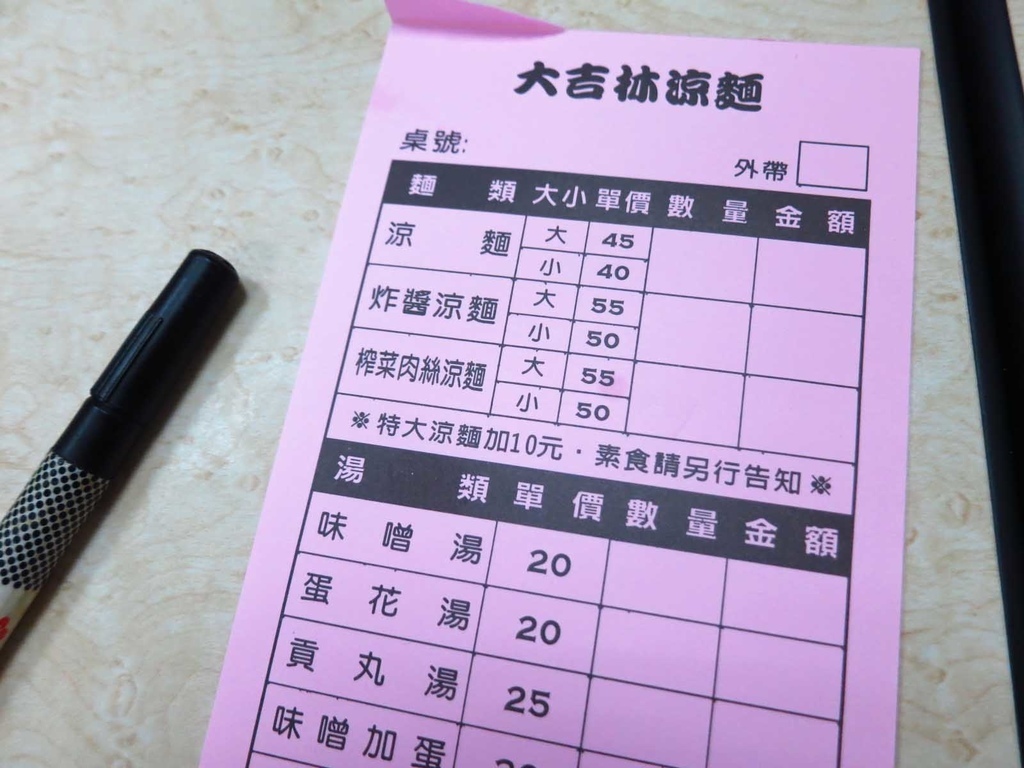 大吉林涼麵
桌號:
外帶
麵類 大小 單價 數量 金額
涼麵 大 45
小 40
炸醬涼麵 大 55
小 50
榨菜肉絲涼麵 大 55
小 50
※特大涼麵加10元·素食請另行告知※
湯類 單價 數量 金額
味噌湯 20
蛋花湯 20
貢丸湯 25
味噌加蛋